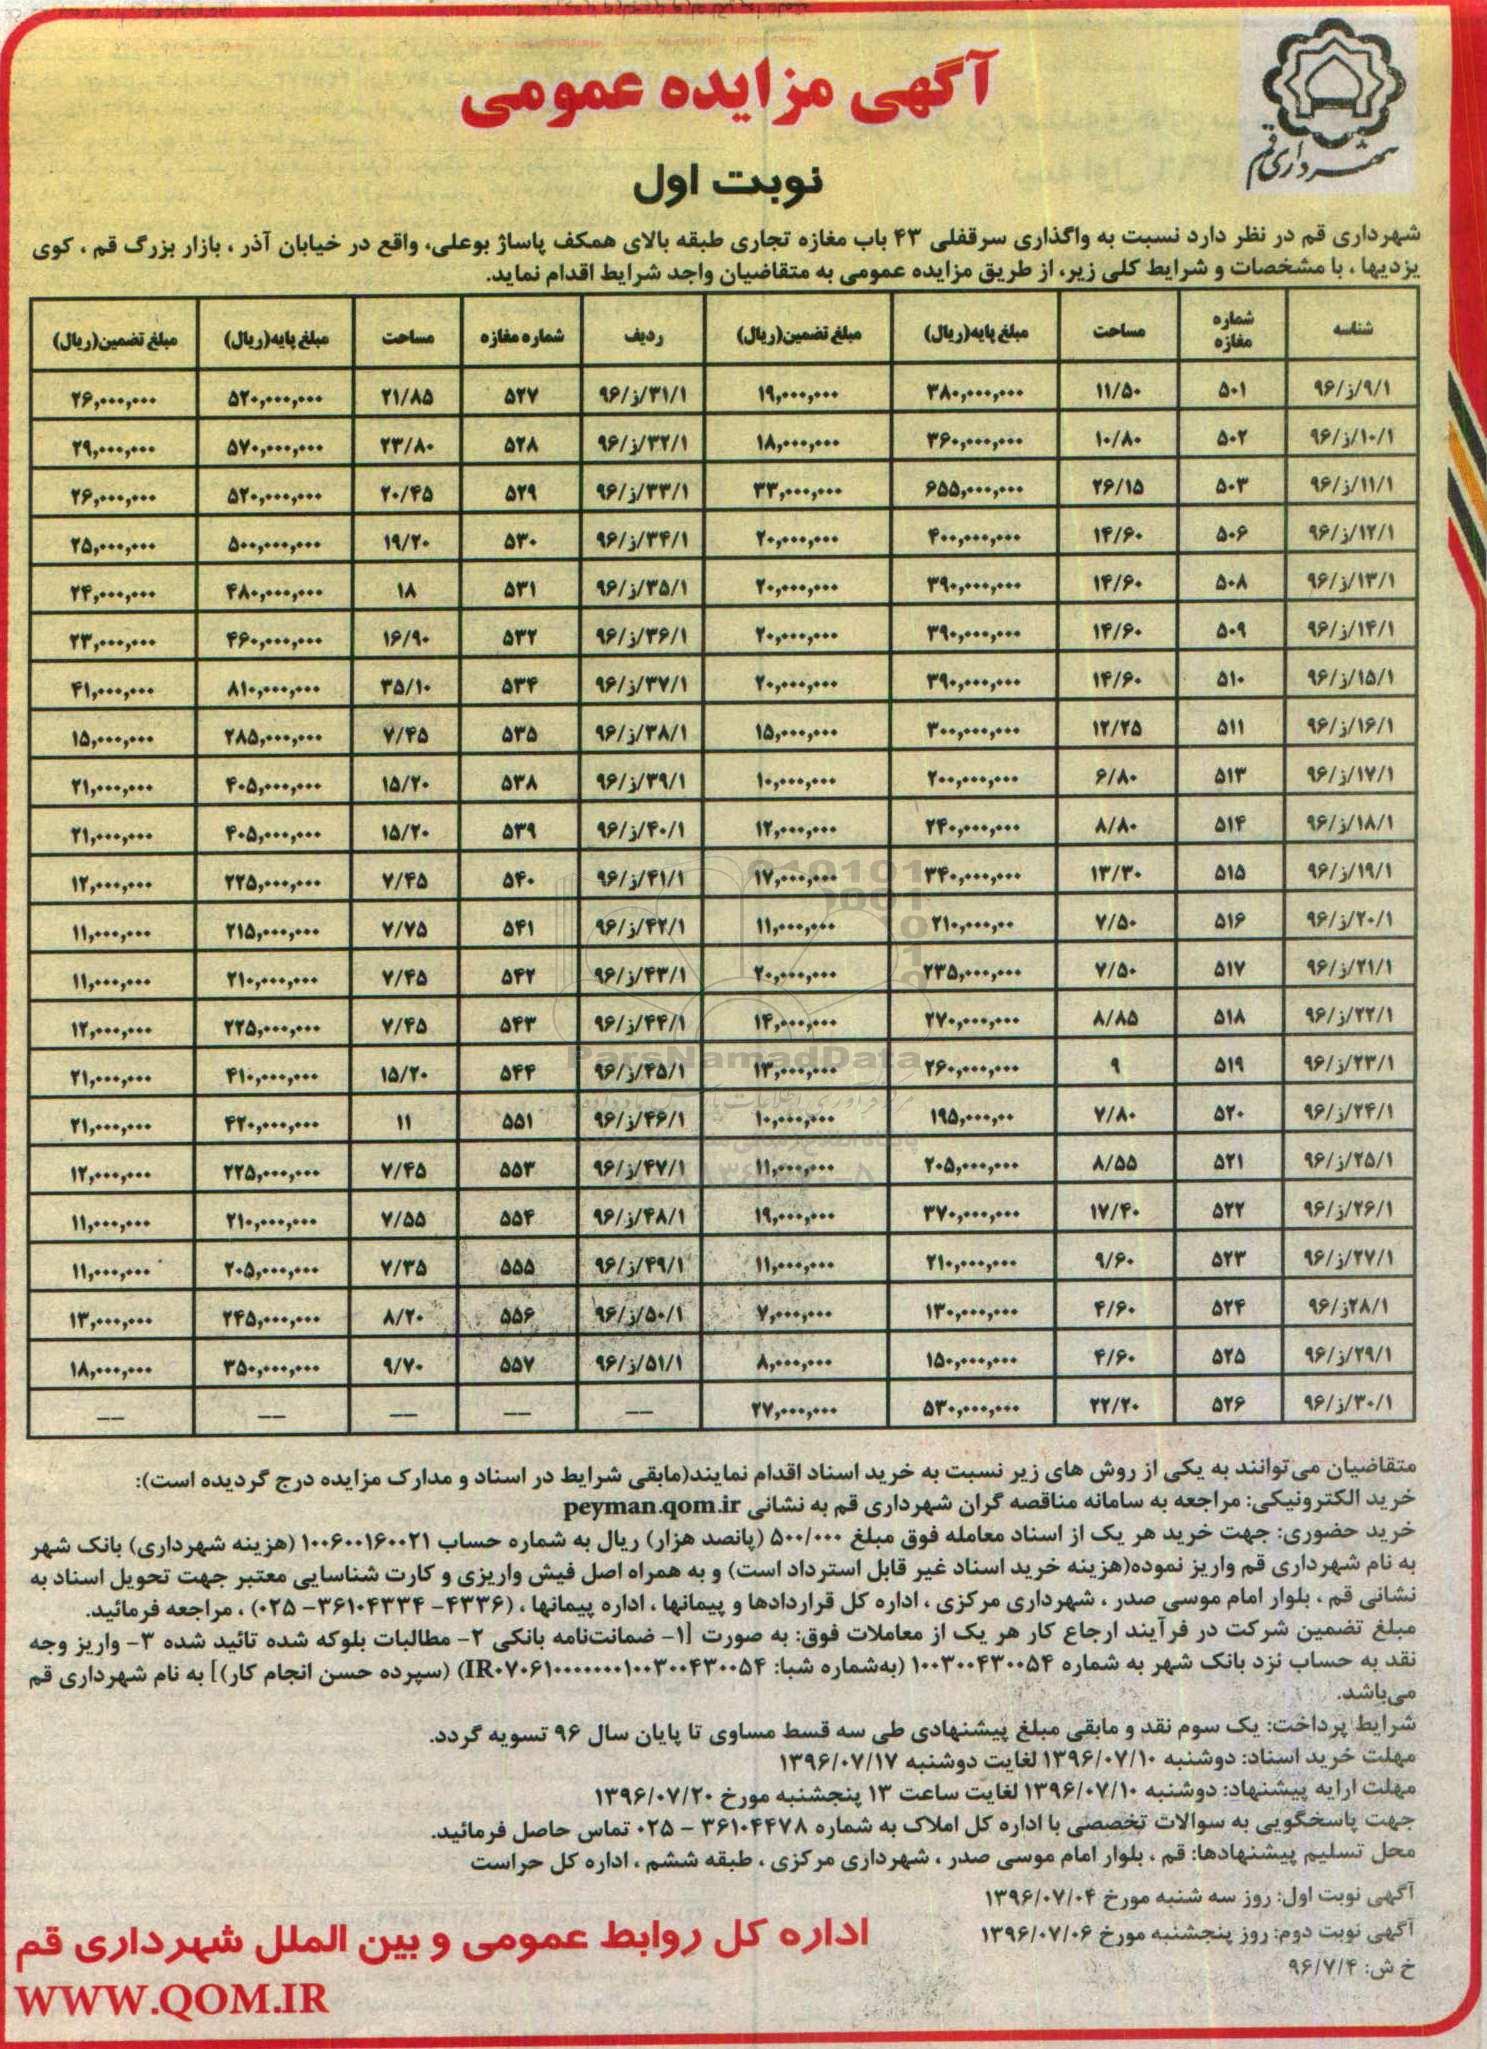 شهرداری قم
آگهی مزایده عمومی
نوبت اول
شهرداری قم در نظر دارد نسبت به واگذاری سرقفلی ۴۳ باب مغازه تجاری طبقه بالای همکف پاساژ بوعلی، واقع در خیابان آذر ، بازار بزرگ قم ، کوی
یزدیها ، با مشخصات و شرایط کلی زیر، از طریق مزایده عمومی به متقاضیان واجد شرایط اقدام نماید.
شناسه شماره مغازه مساحت مبلغ پایه(ریال) مبلغ تضمین(ریال) ردیف شماره مغازه مساحت مبلغ پایه(ریال) مبلغ تضمین(ریال)
۹/۱/ز/۹۶ ۵۰۱ ۱۱/۵۰ ۳۸۰,۰۰۰,۰۰۰ ۱۹,۰۰۰,۰۰۰ ۳۱/۱/ز/۹۶ ۵۲۷ ۲۱/۸۵ ۵۲۰,۰۰۰,۰۰۰ ۲۶,۰۰۰,۰۰۰
۱۰/۱/ز/۹۶ ۵۰۲ ۱۰/۸۰ ۳۶۰,۰۰۰,۰۰۰ ۱۸,۰۰۰,۰۰۰ ۳۲/۱/ز/۹۶ ۵۲۸ ۲۳/۸۰ ۵۷۰,۰۰۰,۰۰۰ ۲۹,۰۰۰,۰۰۰
۱۱/۱/ز/۹۶ ۵۰۳ ۲۶/۱۵ ۶۵۵,۰۰۰,۰۰۰ ۳۳,۰۰۰,۰۰۰ ۳۳/۱/ز/۹۶ ۵۲۹ ۲۰/۴۵ ۵۲۰,۰۰۰,۰۰۰ ۲۶,۰۰۰,۰۰۰
۱۲/۱/ز/۹۶ ۵۰۶ ۱۴/۶۰ ۴۰۰,۰۰۰,۰۰۰ ۲۰,۰۰۰,۰۰۰ ۳۴/۱/ز/۹۶ ۵۳۰ ۱۹/۲۰ ۵۰۰,۰۰۰,۰۰۰ ۲۵,۰۰۰,۰۰۰
۱۳/۱/ز/۹۶ ۵۰۸ ۱۴/۶۰ ۳۹۰,۰۰۰,۰۰۰ ۲۰,۰۰۰,۰۰۰ ۳۵/۱/ز/۹۶ ۵۳۱ ۱۸ ۴۸۰,۰۰۰,۰۰۰ ۲۴,۰۰۰,۰۰۰
۱۴/۱/ز/۹۶ ۵۰۹ ۱۴/۶۰ ۳۹۰,۰۰۰,۰۰۰ ۲۰,۰۰۰,۰۰۰ ۳۶/۱/ز/۹۶ ۵۳۲ ۱۶/۹۰ ۴۶۰,۰۰۰,۰۰۰ ۲۳,۰۰۰,۰۰۰
۱۵/۱/ز/۹۶ ۵۱۰ ۱۴/۶۰ ۳۹۰,۰۰۰,۰۰۰ ۲۰,۰۰۰,۰۰۰ ۳۷/۱/ز/۹۶ ۵۳۴ ۳۵/۱۰ ۸۱۰,۰۰۰,۰۰۰ ۴۱,۰۰۰,۰۰۰
۱۶/۱/ز/۹۶ ۵۱۱ ۱۲/۲۵ ۳۰۰,۰۰۰,۰۰۰ ۱۵,۰۰۰,۰۰۰ ۳۸/۱/ز/۹۶ ۵۳۵ ۷/۴۵ ۲۸۵,۰۰۰,۰۰۰ ۱۵,۰۰۰,۰۰۰
۱۷/۱/ز/۹۶ ۵۱۳ ۶/۸۰ ۲۰۰,۰۰۰,۰۰۰ ۱۰,۰۰۰,۰۰۰ ۳۹/۱/ز/۹۶ ۵۳۸ ۱۵/۲۰ ۴۰۵,۰۰۰,۰۰۰ ۲۱,۰۰۰,۰۰۰
۱۸/۱/ز/۹۶ ۵۱۴ ۸/۸۰ ۲۴۰,۰۰۰,۰۰۰ ۱۲,۰۰۰,۰۰۰ ۴۰/۱/ز/۹۶ ۵۳۹ ۱۵/۲۰ ۴۰۵,۰۰۰,۰۰۰ ۲۱,۰۰۰,۰۰۰
۱۹/۱/ز/۹۶ ۵۱۵ ۱۳/۳۰ ۳۴۰,۰۰۰,۰۰۰ ۱۷,۰۰۰,۰۰۰ ۴۱/۱/ز/۹۶ ۵۴۰ ۷/۴۵ ۲۲۵,۰۰۰,۰۰۰ ۱۲,۰۰۰,۰۰۰
۲۰/۱/ز/۹۶ ۵۱۶ ۷/۵۰ ۲۱۰,۰۰۰,۰۰ ۱۱,۰۰۰,۰۰۰ ۴۲/۱/ز/۹۶ ۵۴۱ ۷/۷۵ ۲۱۵,۰۰۰,۰۰۰ ۱۱,۰۰۰,۰۰۰
۲۱/۱/ز/۹۶ ۵۱۷ ۷/۵۰ ۲۳۵,۰۰۰,۰۰۰ ۲۰,۰۰۰,۰۰۰ ۴۳/۱/ز/۹۶ ۵۴۲ ۷/۴۵ ۲۱۰,۰۰۰,۰۰۰ ۱۱,۰۰۰,۰۰۰
۲۲/۱/ز/۹۶ ۵۱۸ ۸/۸۵ ۲۷۰,۰۰۰,۰۰۰ ۱۴,۰۰۰,۰۰۰ ۴۴/۱/ز/۹۶ ۵۴۳ ۷/۴۵ ۲۲۵,۰۰۰,۰۰۰ ۱۲,۰۰۰,۰۰۰
۲۳/۱/ز/۹۶ ۵۱۹ ۹ ۲۶۰,۰۰۰,۰۰۰ ۱۳,۰۰۰,۰۰۰ ۴۵/۱/ز/۹۶ ۵۴۴ ۱۵/۲۰ ۴۱۰,۰۰۰,۰۰۰ ۲۱,۰۰۰,۰۰۰
۲۴/۱/ز/۹۶ ۵۲۰ ۷/۸۰ ۱۹۵,۰۰۰,۰۰ ۱۰,۰۰۰,۰۰۰ ۴۶/۱/ز/۹۶ ۵۵۱ ۱۱ ۴۲۰,۰۰۰,۰۰۰ ۲۱,۰۰۰,۰۰۰
۲۵/۱/ز/۹۶ ۵۲۱ ۸/۵۵ ۲۰۵,۰۰۰,۰۰۰ ۱۱,۰۰۰,۰۰۰ ۴۷/۱/ز/۹۶ ۵۵۳ ۷/۴۵ ۲۲۵,۰۰۰,۰۰۰ ۱۲,۰۰۰,۰۰۰
۲۶/۱/ز/۹۶ ۵۲۲ ۱۷/۴۰ ۳۷۰,۰۰۰,۰۰۰ ۱۹,۰۰۰,۰۰۰ ۴۸/۱/ز/۹۶ ۵۵۴ ۷/۵۵ ۲۱۰,۰۰۰,۰۰۰ ۱۱,۰۰۰,۰۰۰
۲۷/۱/ز/۹۶ ۵۲۳ ۹/۶۰ ۲۱۰,۰۰۰,۰۰۰ ۱۱,۰۰۰,۰۰۰ ۴۹/۱/ز/۹۶ ۵۵۵ ۷/۳۵ ۲۰۵,۰۰۰,۰۰۰ ۱۱,۰۰۰,۰۰۰
۲۸/۱ز/۹۶ ۵۲۴ ۴/۶۰ ۱۳۰,۰۰۰,۰۰۰ ۷,۰۰۰,۰۰۰ ۵۰/۱/ز/۹۶ ۵۵۶ ۸/۲۰ ۲۴۵,۰۰۰,۰۰۰ ۱۳,۰۰۰,۰۰۰
۲۹/۱/ز/۹۶ ۵۲۵ ۴/۶۰ ۱۵۰,۰۰۰,۰۰۰ ۸,۰۰۰,۰۰۰ ۵۱/۱/ز/۹۶ ۵۵۷ ۹/۷۰ ۳۵۰,۰۰۰,۰۰۰ ۱۸,۰۰۰,۰۰۰
۳۰/۱/ز/۹۶ ۵۲۶ ۲۲/۲۰ ۵۳۰,۰۰۰,۰۰۰ ۲۷,۰۰۰,۰۰۰ — — — — —
ParsNamadData
متقاضیان می‌توانند به یکی از روش های زیر نسبت به خرید اسناد اقدام نمایند(مابقی شرایط در اسناد و مدارک مزایده درج گردیده است):
خرید الکترونیکی: مراجعه به سامانه مناقصه گران شهرداری قم به نشانی peyman.qom.ir
خرید حضوری: جهت خرید هر یک از اسناد معامله فوق مبلغ ۵۰۰/۰۰۰ (پانصد هزار) ریال به شماره حساب ۱۰۰۶۰۰۱۶۰۰۲۱ (هزینه شهرداری) بانک شهر
به نام شهرداری قم واریز نموده(هزینه خرید اسناد غیر قابل استرداد است) و به همراه اصل فیش واریزی و کارت شناسایی معتبر جهت تحویل اسناد به
نشانی قم ، بلوار امام موسی صدر ، شهرداری مرکزی ، اداره کل قراردادها و پیمانها ، اداره پیمانها ، (۴۳۳۶- ۳۶۱۰۴۳۳۴- ۰۲۵) ، مراجعه فرمائید.
مبلغ تضمین شرکت در فرآیند ارجاع کار هر یک از معاملات فوق: به صورت [۱- ضمانت‌نامه بانکی ۲- مطالبات بلوکه شده تائید شده ۳- واریز وجه
نقد به حساب نزد بانک شهر به شماره ۱۰۰۳۰۰۴۳۰۰۵۴ (به‌شماره شبا: IR۰۷۰۶۱۰۰۰۰۰۰۰۱۰۰۳۰۰۴۳۰۰۵۴) (سپرده حسن انجام کار)] به نام شهرداری قم
می‌باشد.
شرایط پرداخت: یک سوم نقد و مابقی مبلغ پیشنهادی طی سه قسط مساوی تا پایان سال ۹۶ تسویه گردد.
مهلت خرید اسناد: دوشنبه ۱۳۹۶/۰۷/۱۰ لغایت دوشنبه ۱۳۹۶/۰۷/۱۷
مهلت ارایه پیشنهاد: دوشنبه ۱۳۹۶/۰۷/۱۰ لغایت ساعت ۱۳ پنجشنبه مورخ ۱۳۹۶/۰۷/۲۰
جهت پاسخگویی به سوالات تخصصی با اداره کل املاک به شماره ۳۶۱۰۴۴۷۸ - ۰۲۵ تماس حاصل فرمائید.
محل تسلیم پیشنهادها: قم ، بلوار امام موسی صدر ، شهرداری مرکزی ، طبقه ششم ، اداره کل حراست
آگهی نوبت اول: روز سه شنبه مورخ ۱۳۹۶/۰۷/۰۴
آگهی نوبت دوم: روز پنجشنبه مورخ ۱۳۹۶/۰۷/۰۶
خ ش: ۹۶/۷/۴
اداره کل روابط عمومی و بین الملل شهرداری قم
WWW.QOM.IR